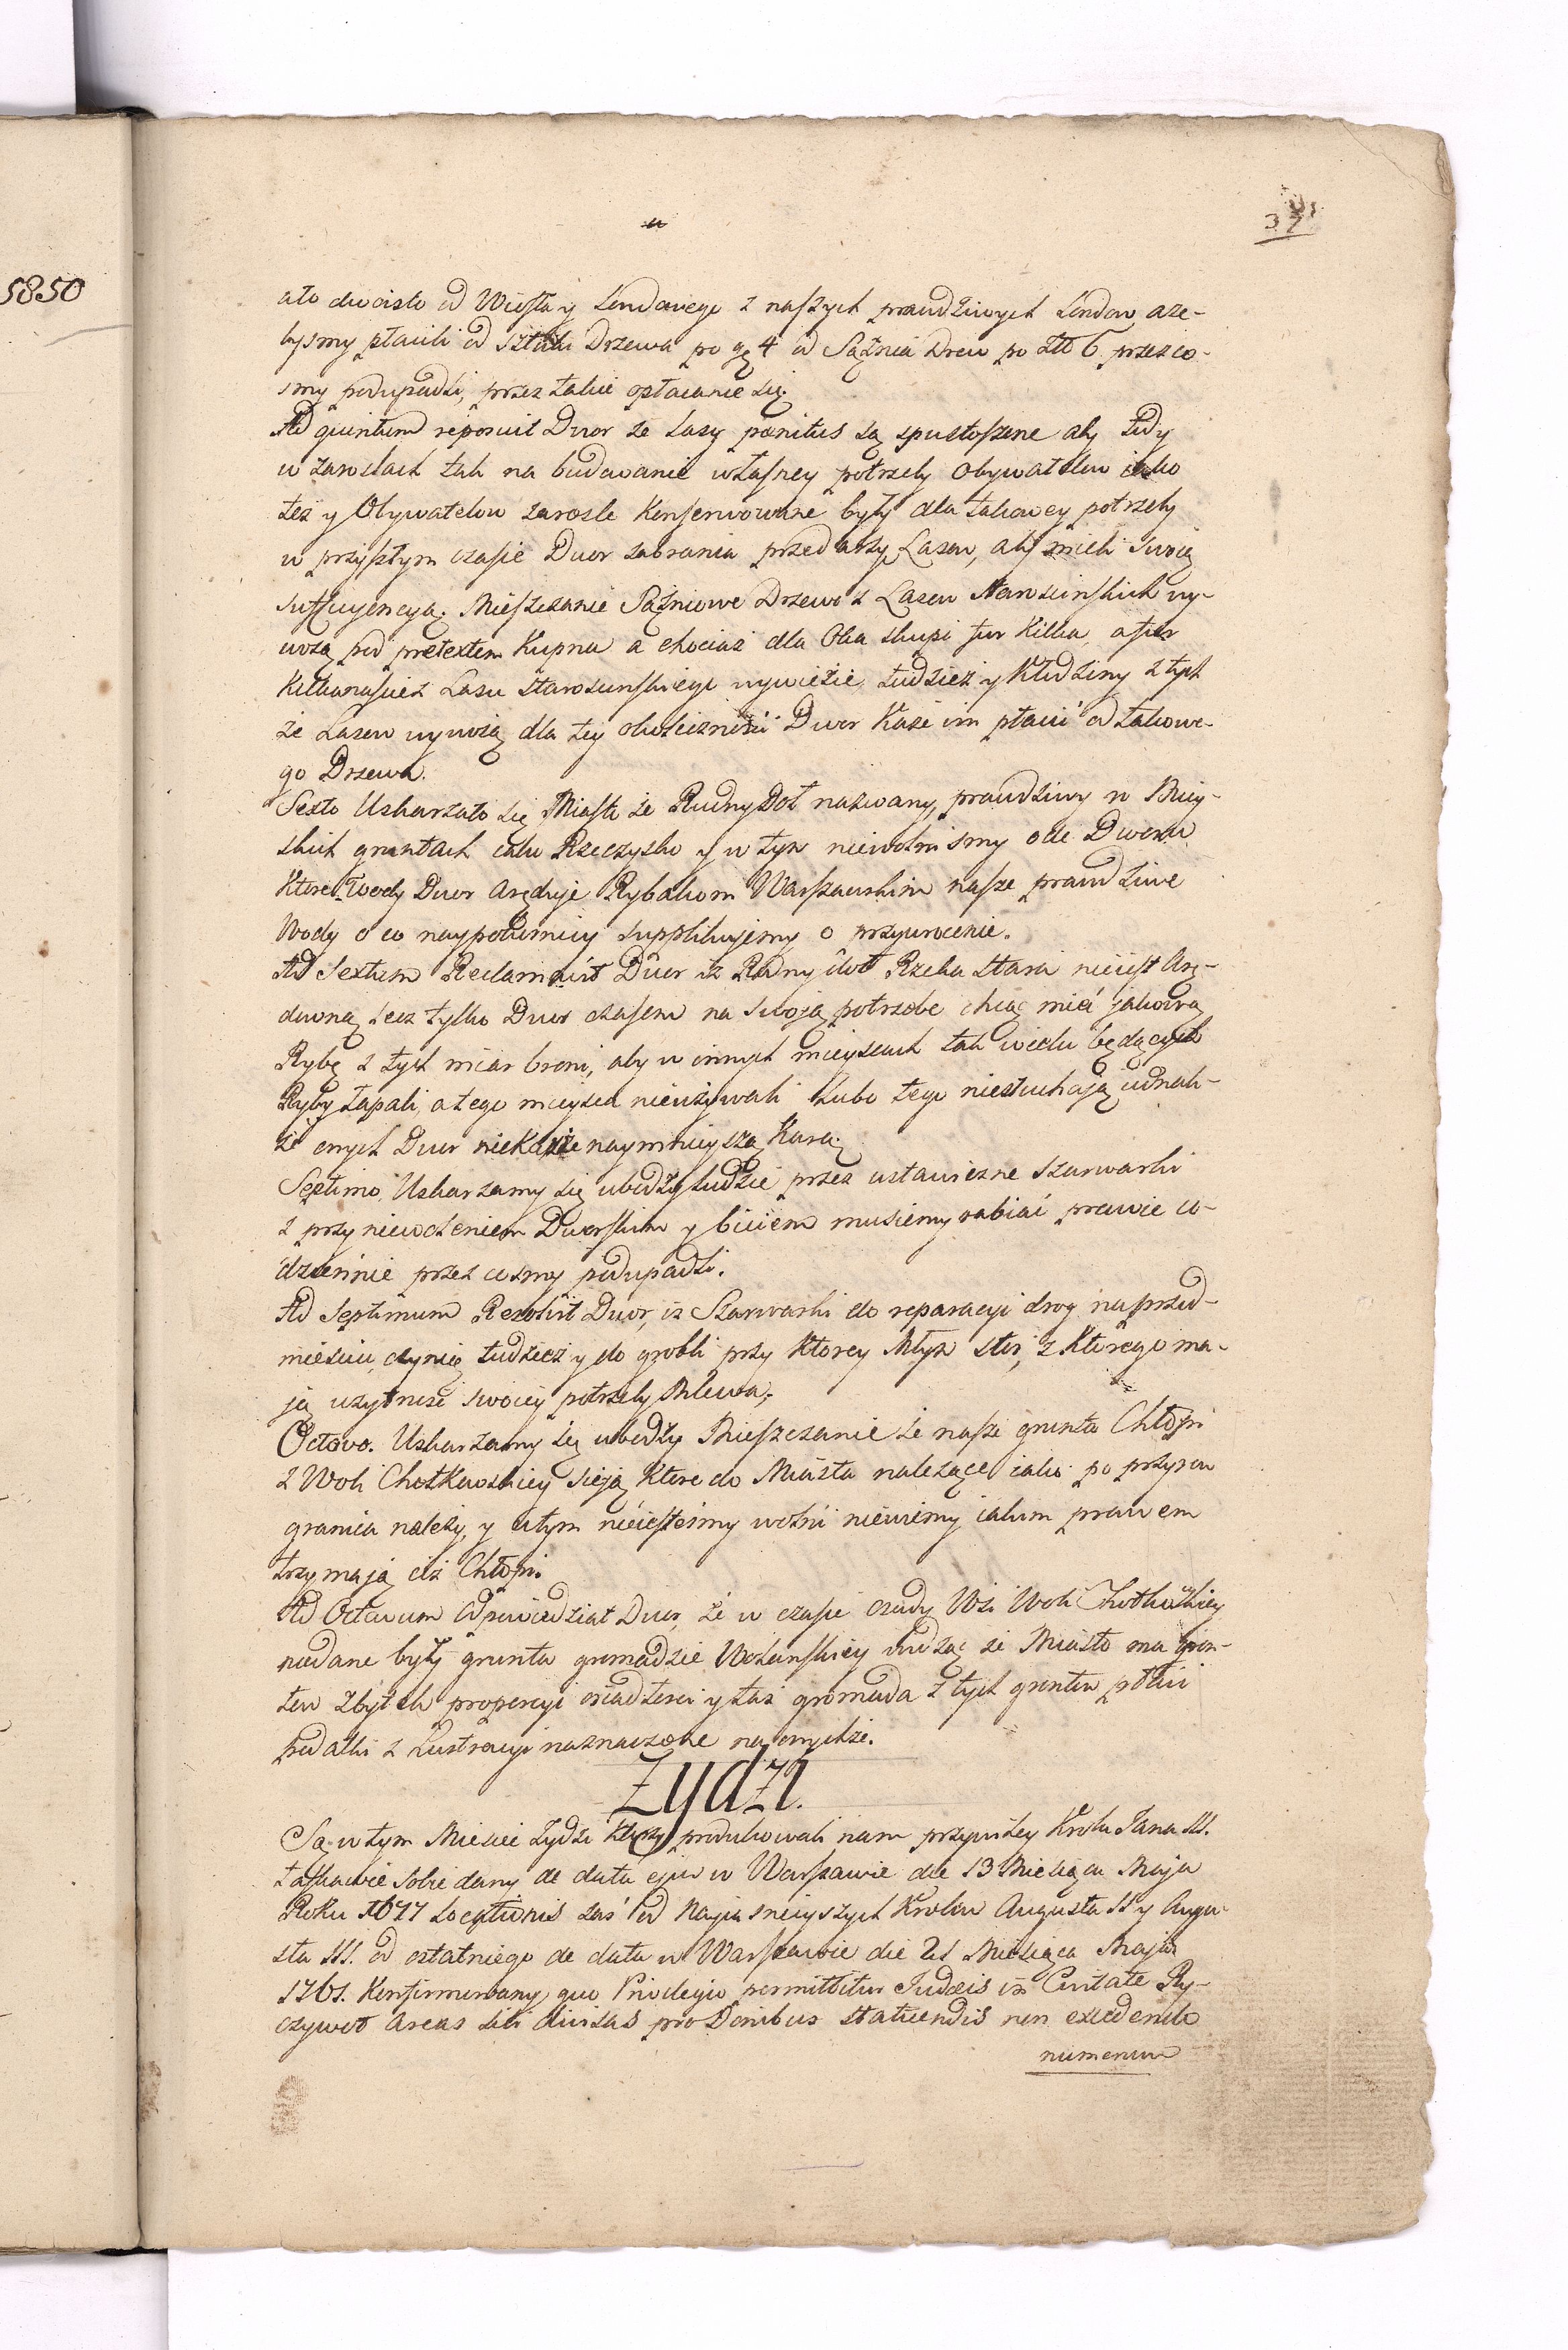 5850
37
ato dwoisto od Wiosła y Londowego z naszych prawdziwych Londow aze-
bysmy płacili od sztuki Drzewa po gę 4 od Sążnia Drew po Zł 6 przez co-
smy podupadli, przez takie opłacanie się.
Ad quintum reposuit Dwor że Lasy penitus są spustoszone aby tedy
w zaroslach tak na budowanie własney potrzeby Obywatelow iako
też y Obywatelow zarosle konserwowane były dla takowey potrzeby
w przyszłym czasie Dwor zabrania przedaży Lasow, aby mieli swoię
suffcyencyą. Mieszczanie Sążniowe Drzewo z Lasow Staroscinskich wy-
wożą pod pretextem Kupna a chociaż dla Oka skupi fur kilka, a fur
kilkanaście z Lasu Staroscinskiego wywiezie, tudzież y Kłodziny z tych
że Lasow wywożą dla tey okoliczności Dwor Każe im płacić od takowe-
go Drzewa.
Sexto Uskarzało się Miasto że Rudny Doł nazwany, prawdziwy w Miey-
skich gruntach iako Rzeczysko y w tym niewolni smy ode Dworu
Ktore Wody Dwor Aręduje Rybakom Warszawskim nasze prawdziwe
Wody o co naypokorniey supplikujemy o przywrocenie.
Ad Sextum Reclamavit Dwor iż Rudny doł Rzeka Stara nieiest Arę-
downą, lecz tylko Dwor czasem na swoją potrzebe chcąc mieć jakową
Rybę z tych miar broni, aby w innych mieyscach tak wielu będących
Ryby łapali, a tego mieysca nieużywali Lubo tego niesłuchają iednak-
że onych Dwor niekarze naymnieyszą Karą.
Septimo Uskarzamy się ubodzy ludzie przez ustawiczne szarwarki
z przyniewoleniem Dworskim y biciem musiemy robiać prawie co-
dziennie przez cosmy podupadli.
Ad Septimum Rezolvit Dwor, iz Szarwarki do reparacyi drog na przed-
miesciu czynią tudzież y do grobli przy ktorey Młyn stoi, z ktorego ma-
ją użytnosć swoiey potrzeby Mlewa.
Octavo. Uskarzamy się ubodzy Mieszczanie że nasze grunta Chłopi
z Woli Chotkowskiey sieją ktore do Miasta należące iako po przypu
granica należy, y w tym nieiesteśmy wolni niewiemy iakim prawem
trzymają ciż Chłopi.
Ad Octavum Odpowiedział Dwor, że w czasie osady Wsi Woli Chotkoskiey
nadane były grunta gromadzie Wolanskiey widząc że Miasto ma grun-
tow zbytek proporcyi osiadłosci y taż gromada z tych grontow płaci
podatki z Lustracyi naznaczone na onychże.
Zydzi.
Są w tym Miescie Zydzi ktorzy produkowali nam przywiley Krola Jana III.
łaskawie sobie dany de data ejus w Warszawie die 13 Miesiąca Maja
Roku 1677 Locationis zaś od Nayiasnieyszych Krolow Augusta II y Augu-
sta III. od ostatniego de data w Warszawie die 21 Miesiąca Maja
1761. Konfirmowany quo Privilegio permittitur Judæis in Civitate Ry-
czywoł Areas sibi divisas pro Domibus statuendis non excedendo
numerum